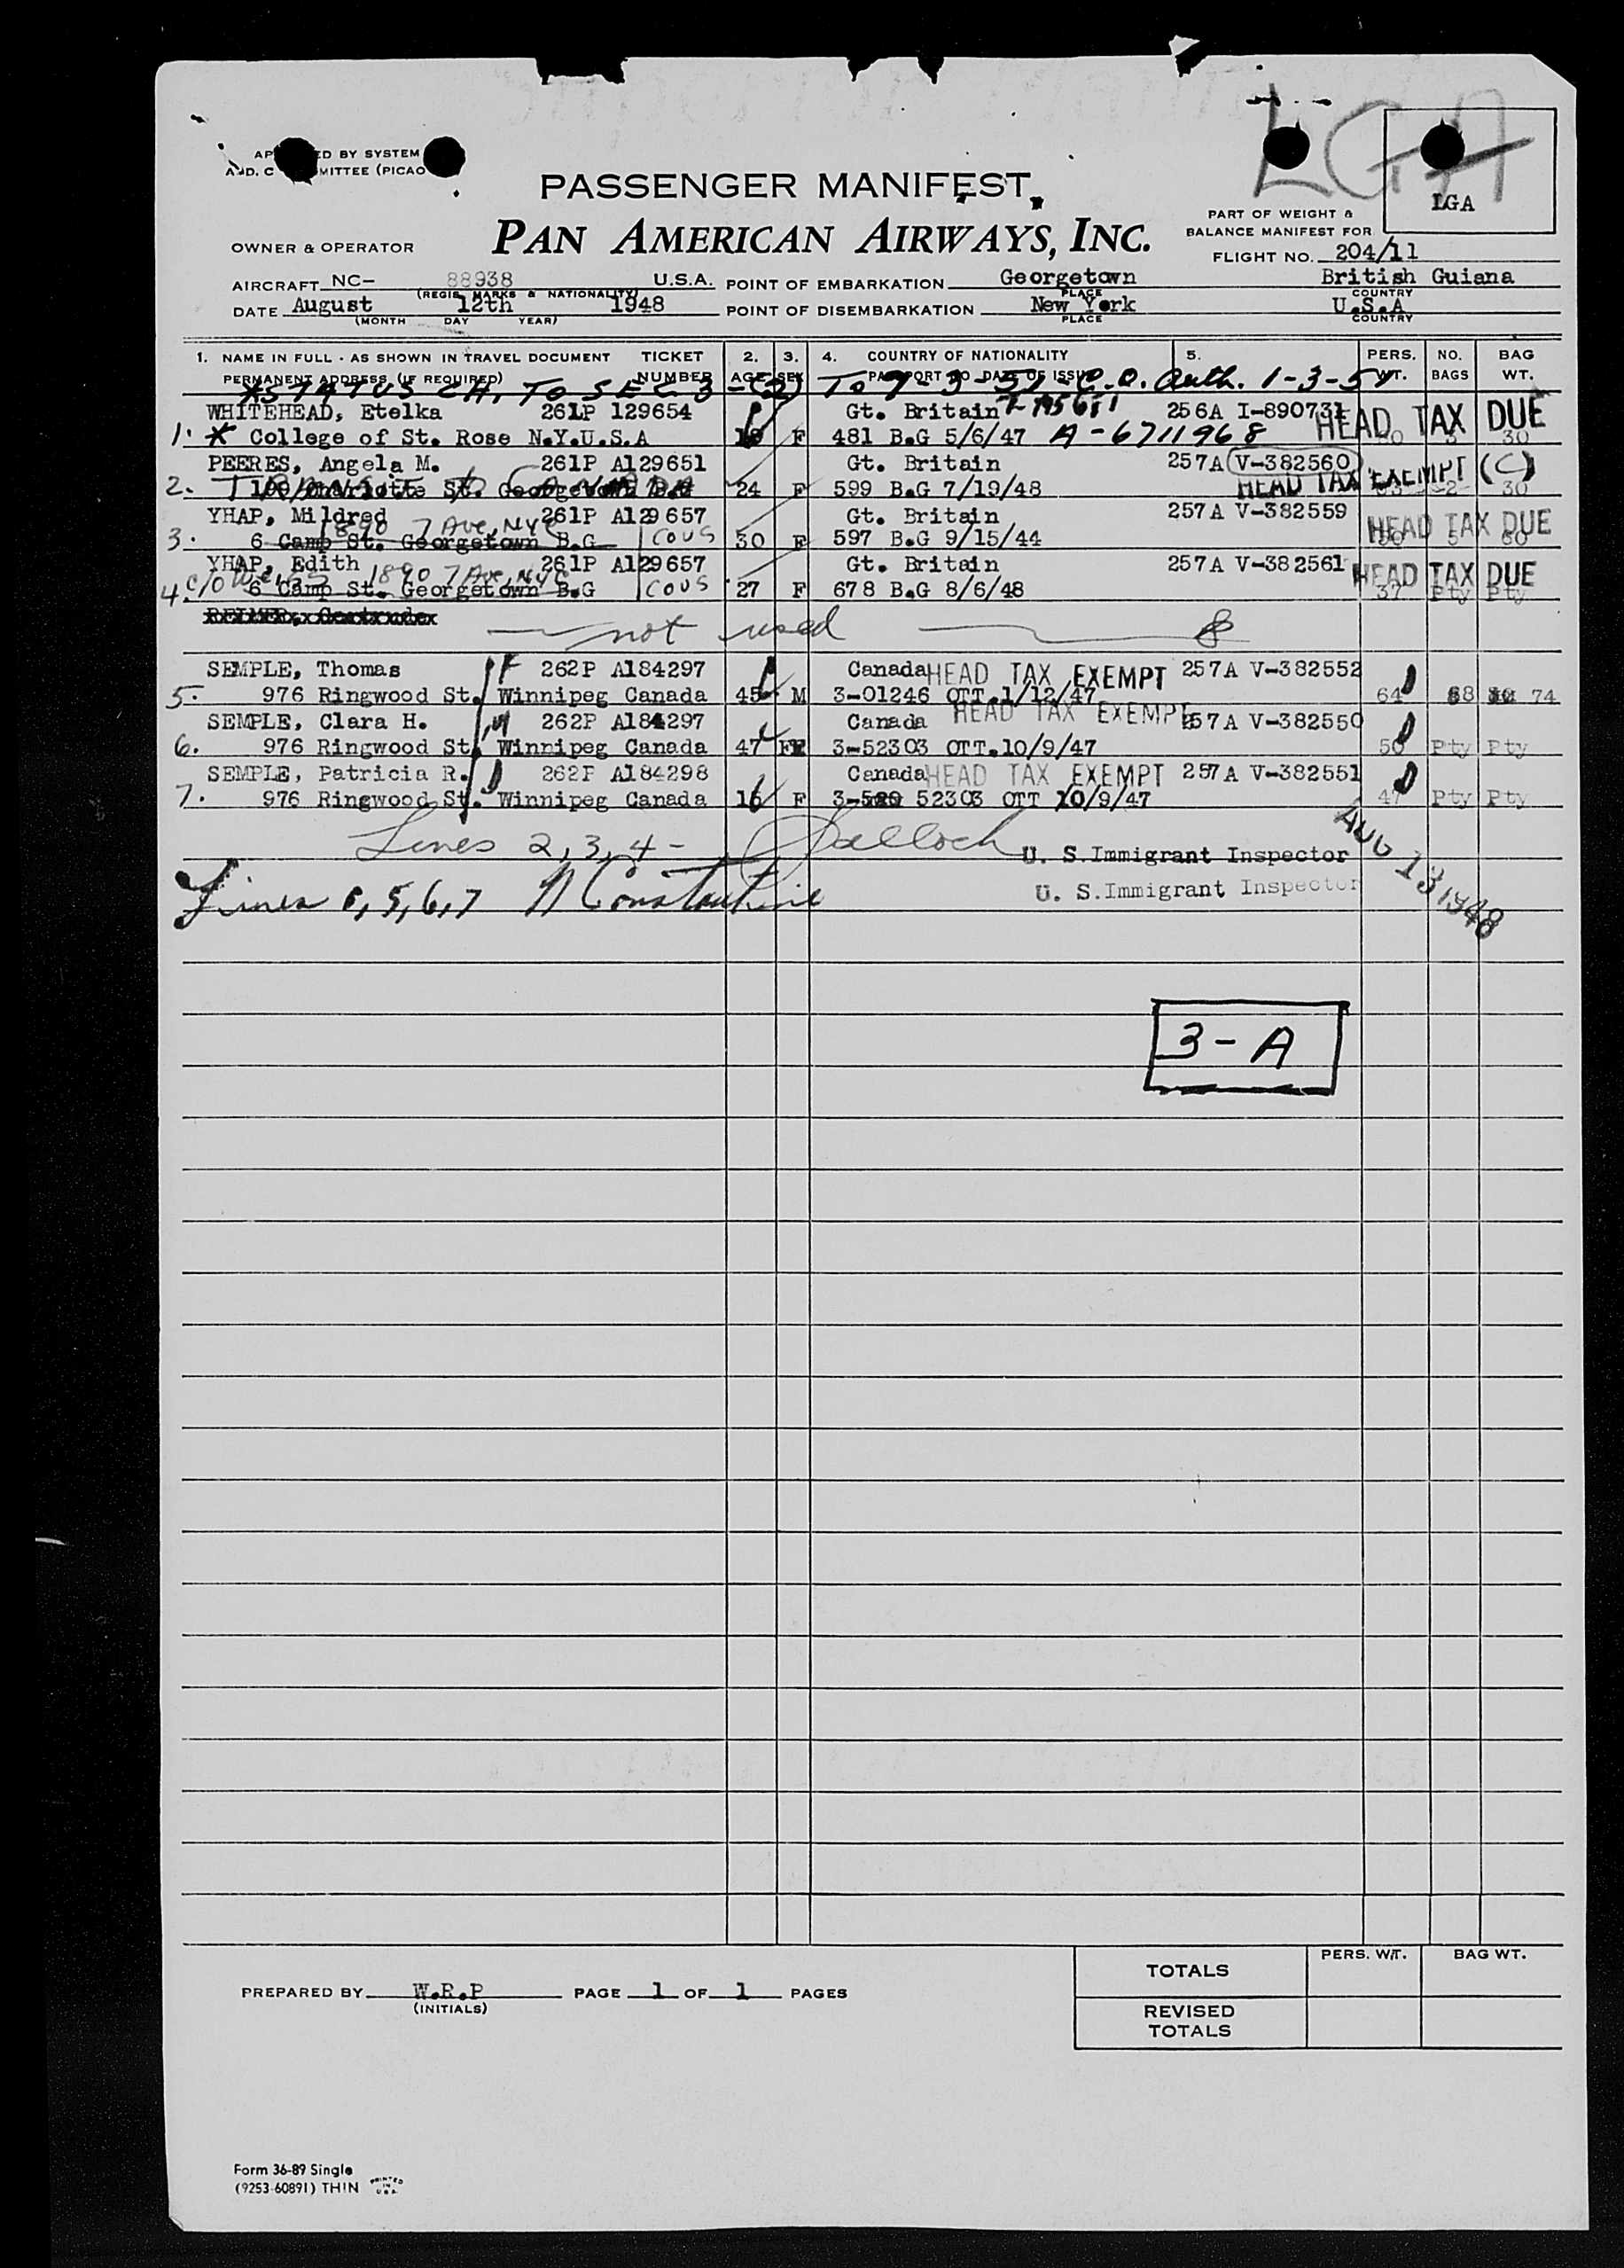 LGA
BY SYSTEM
MITTEE (PICAO
PASSENGER MANIFEST,
PAN AMERICAN AIRWAYS, INC.
LGA
PART OF WEIGHT &
BALANCE MANIFEST FOR
OWNER & OPERATOR
FLIGHT NO. 204/11
AIRCRAFT NC- 88938 U.S.A. POINT OF EMBARKATION Georgetown British Guiana
(REGIS. MARKS & NATIONALITY) PLACE COUNTRY
DATE August 12th 1948 POINT OF DISEMBARKATION New York U.S.A
(MONTH DAY YEAR) PLACE COUNTRY
1. NAME IN FULL - AS SHOWN IN TRAVEL DOCUMENT TICKET 2. 3. 4. COUNTRY OF NATIONALITY 5. PERS. NO. BAG
PERMANENT ADDRESS (IF REQUIRED) NUMBER AGE SEX PASSPORT NO DATE OF ISSUE WT. BAGS WT.
*STATUS CH. TO SEC 3-(2) To 9-3-51 - C.O. Auth. 1-3-51
WHITEHEAD, Etelka 261P 129654 Gt. Britain 256A I-890731 HEAD TAX DUE
1. * College of St. Rose N.Y.U.S.A F 481 B.G 5/6/47 A-6711968 30
PEERES, Angela M. 261P A129651 Gt. Britain 257A V-382560 HEAD TAX EXEMPT (C)
2. St. Georgetown 24 F 599 B.G 7/19/48 2 30
YHAP, Mildred 261P A129657 Gt. Britain 257A V-382559 HEAD TAX DUE
1890 7 Ave, NYC
3. 6 Camp St. Georgetown B.G COUS 30 F 597 B.G 9/15/44
YHAP, Edith 261P A129657 Gt. Britain 257A V-382561 HEAD TAX DUE
c/o 1890 7 Ave, NYC
4. 6 Camp St. Georgetown B.G COUS 27 F 678 B.G 8/6/48 37 Pty Pty
not used
SEMPLE, Thomas 262P A184297 Canada HEAD TAX EXEMPT 257A V-382552
5. 976 Ringwood St. Winnipeg Canada 45 M 3-01246 OTT.1/12/47 64 74
SEMPLE, Clara H. 262P A184297 Canada HEAD TAX EXEMPT 257A V-382550
6. 976 Ringwood St. Winnipeg Canada 47 F 3-52303 OTT.10/9/47 50 Pty Pty
SEMPLE, Patricia R. 262P A184298 Canada HEAD TAX EXEMPT 257A V-382551
7. 976 Ringwood St. Winnipeg Canada 16 F 52303 OTT 10/9/47 47 Pty Pty
Lines 2, 3, 4 - U. S.Immigrant Inspector
Lines 5, 6, 7 N Constantine U. S.Immigrant Inspector
AUG 13 1948
3-A
PERS. WT. BAG WT.
TOTALS
PREPARED BY W.R.P PAGE 1 OF 1 PAGES
(INITIALS)
REVISED
TOTALS
Form 36-89 Single
(9253-60891) THIN PRINTED IN U.S.A.